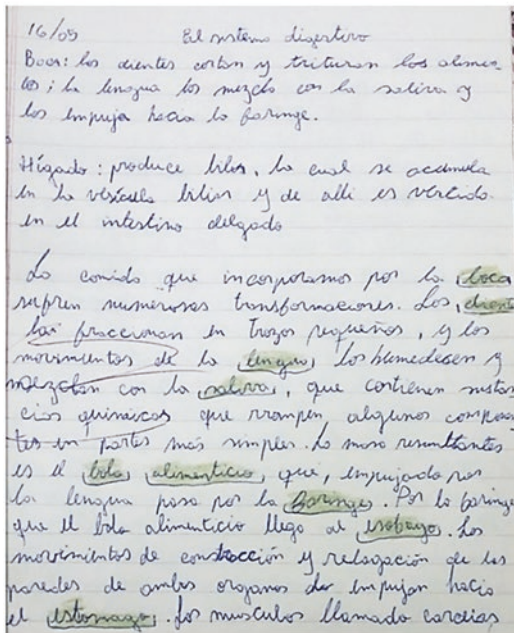 16/05 El sistema digestivo
Boca: los dientes cortan y trituran los alimen-
tos; la lengua los mezcla con la saliva y
los empuja hacia la faringe.
Hígado: produce bilis, la cual se acumula
en la vesícula biliar y de alli es vertido
en el intestino delgado
La comida que incorporamos por la boca
sufren numerosas transformaciones. Los, diente
las fraccionan en trozos pequeños, y los
movimientos de la lengua, los humedecen y
mezclan con la saliva, que contienen sustan
cias químicas que rrompen algunos componen
tes en partes más simples. La masa resultantes
es el bolo alimenticio, que, empujado por
la lengua pasa por la faringe. Por la faringe
que el bolo alimenticio llega al esofago. Los
movimientos de contracción y relajación de las
paredes de ambos organos lo empujan hacia
el estomago. Los musculos llamado cardias